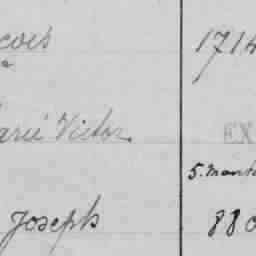 cois 1714
arie Victor EX
5. mont
Joseph 880